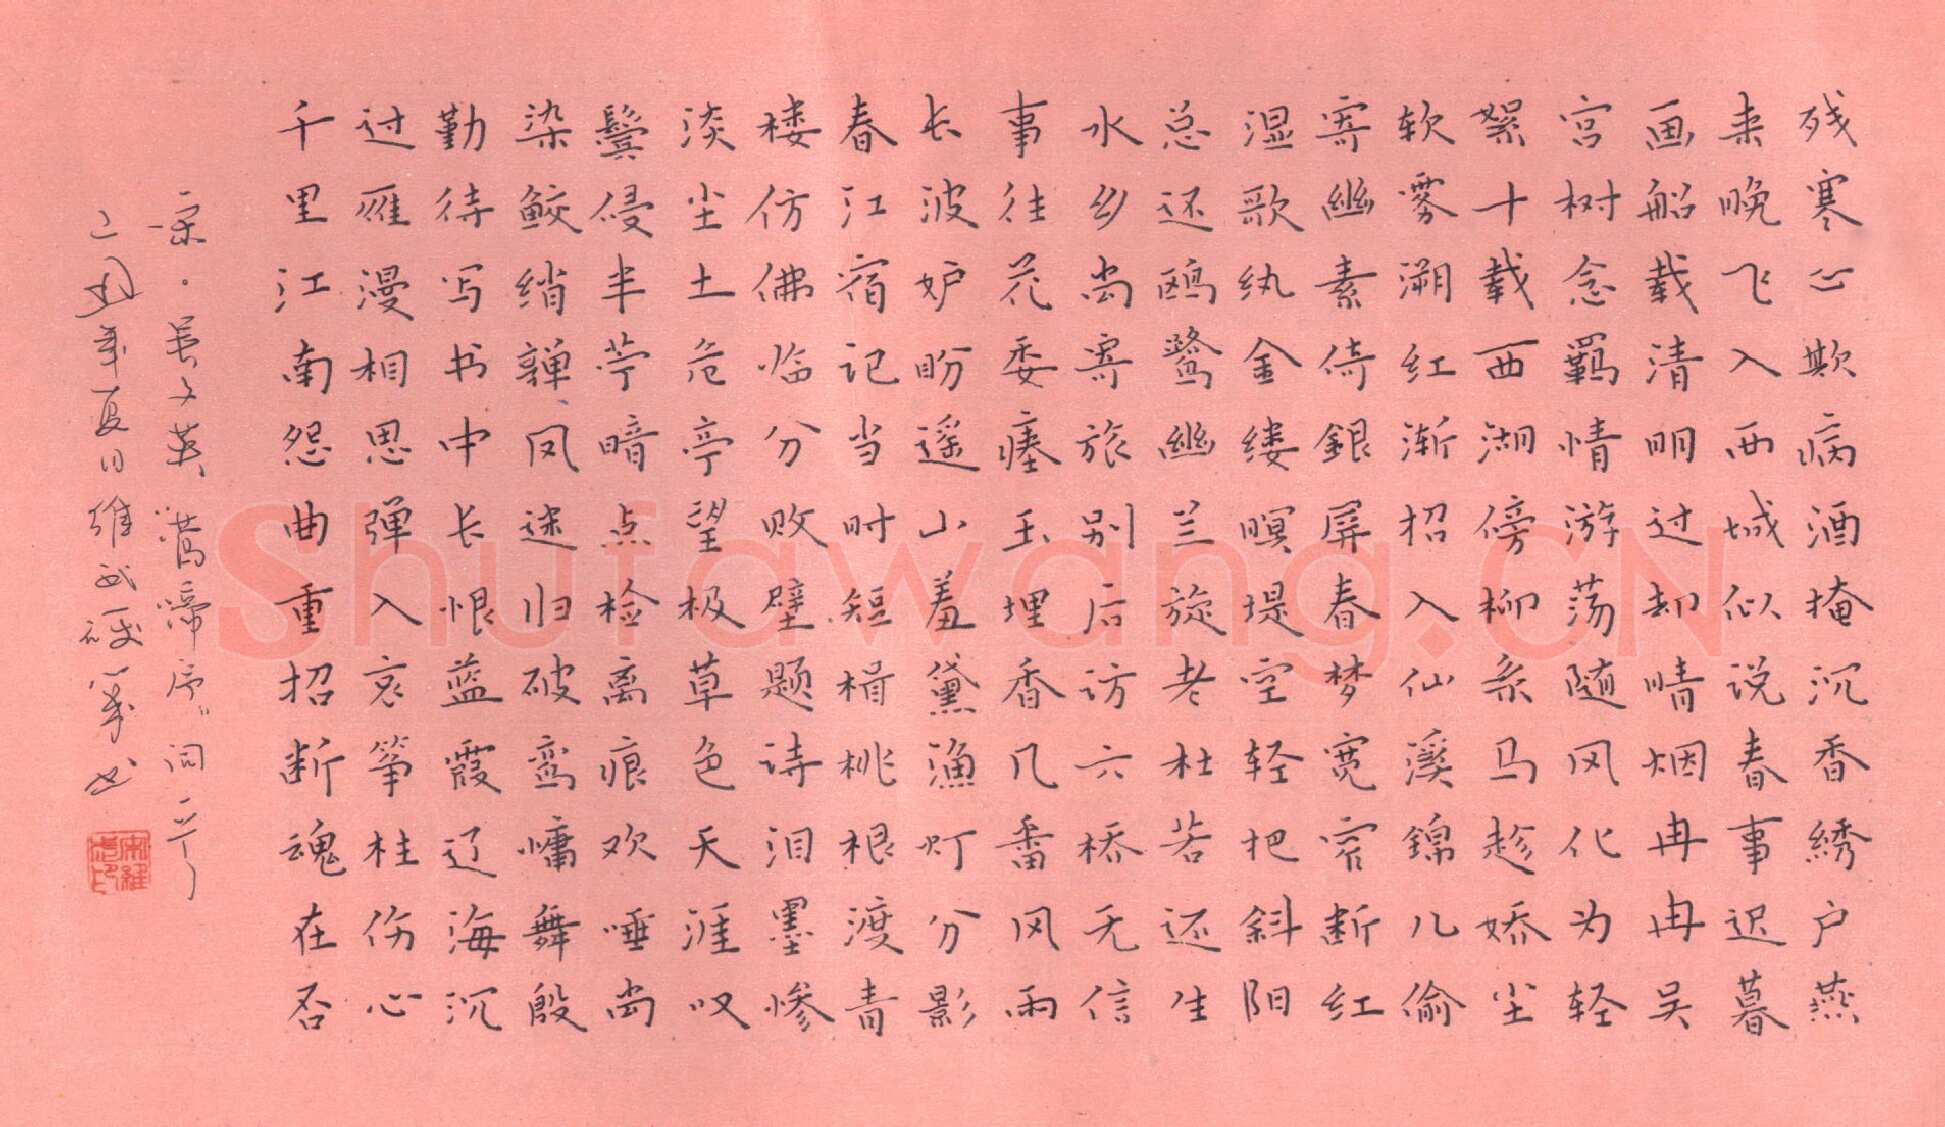 残寒心欺病酒掩沉香绣户燕
来晚飞入西城似说春事迟暮
画船载清明过却晴烟冉冉吴
宫树念羁情游荡随风化为轻
絮十载西湖傍柳系马趁娇尘
软雾溯红渐招入仙溪锦儿偷
寄幽素倚銀屏春梦宽窄断红
湿歌纨金缕暝堤空轻把斜阳
总还鸥鹭幽兰旋老杜若还生
水乡尚寄旅别后访六桥无信
事往花委瘗玉埋香几番风雨
长波妒盼遥山羞黛渔灯分影
春江宿记当时短楫桃根渡青
楼仿佛临分败壁题诗泪墨惨
淡尘土危亭望极草色天涯叹
鬓侵半苎暗点检离痕欢唾尚
染鲛绡亸凤迷归破鸾慵舞殷
勤待写书中长恨蓝霞辽海沉
过雁漫相思弹入哀筝柱伤心
千里江南怨曲重招断魂在否
宋·吴文英"莺啼序"词
年夏日维武硬笔书
Shufawang.CN